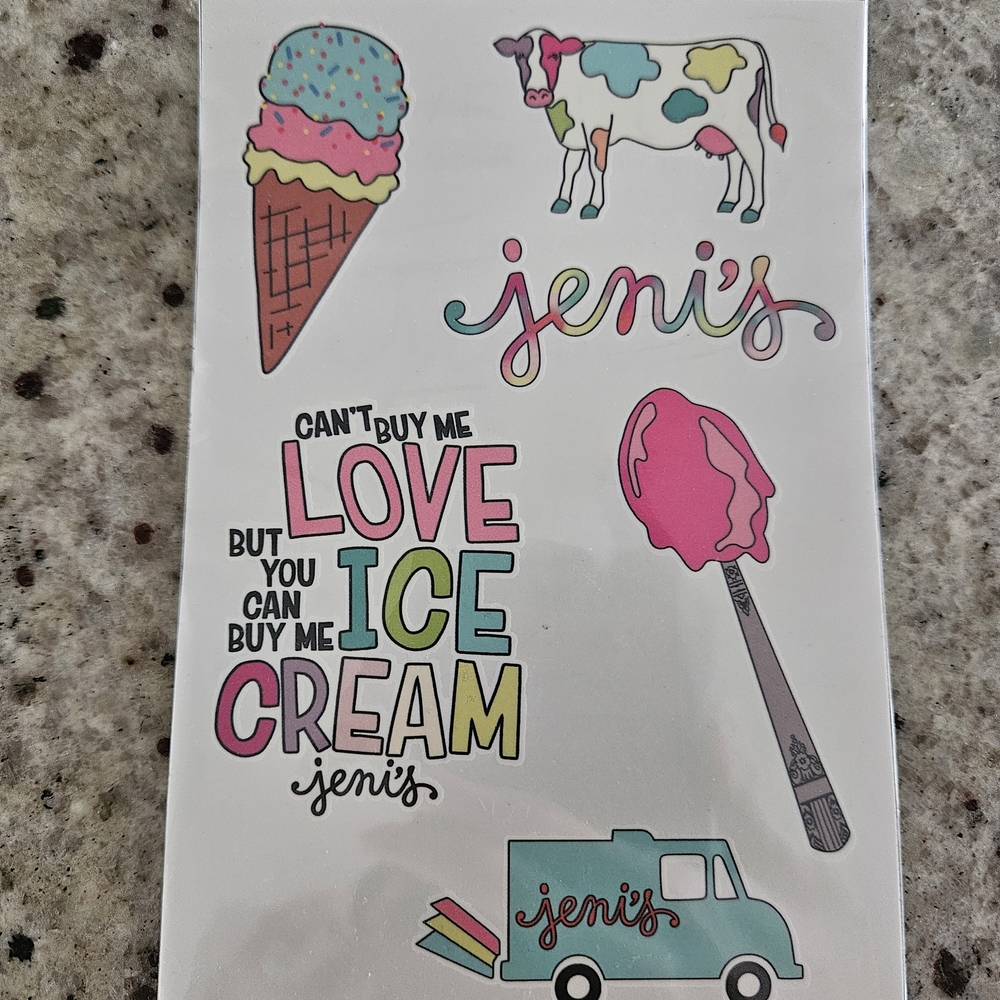 jeni's
CAN'T BUY ME
LOVE
BUT
YOU
CAN
BUY ME
ICE
CREAM
jeni's
jeni's